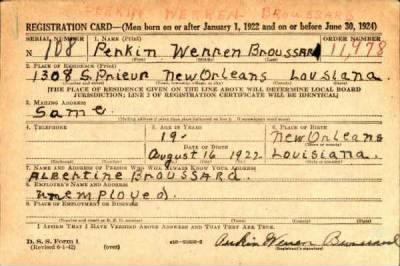 REGISTRATION CARD—(Men born on or after January 1, 1922 and on or before June 30, 1924)
SERIAL NUMBER 1. NAME (Print) ORDER NUMBER
N 108 Perkin Werren Broussard 11,978
(First) (Middle) (Last)
2. PLACE OF RESIDENCE (Print)
1308 S. Prieur New Orleans Louisiana.
[THE PLACE OF RESIDENCE GIVEN ON THE LINE ABOVE WILL DETERMINE LOCAL BOARD
JURISDICTION; LINE 2 OF REGISTRATION CERTIFICATE WILL BE IDENTICAL]
3. MAILING ADDRESS
Same.
[Mailing address if other than place indicated on line 2. If same insert word same]
4. TELEPHONE 5. AGE IN YEARS 6. PLACE OF BIRTH
19 New Orleans
DATE OF BIRTH
August 16 1922 Louisiana.
7. NAME AND ADDRESS OF PERSON WHO WILL ALWAYS KNOW YOUR ADDRESS
Albertine Broussard.
8. EMPLOYER'S NAME AND ADDRESS
unemployed.
9. PLACE OF EMPLOYMENT OR BUSINESS
I AFFIRM THAT I HAVE VERIFIED ABOVE ANSWERS AND THAT THEY ARE TRUE.
D. S. S. Form 1
(Revised 6-1-42) Perkin Werren Broussard